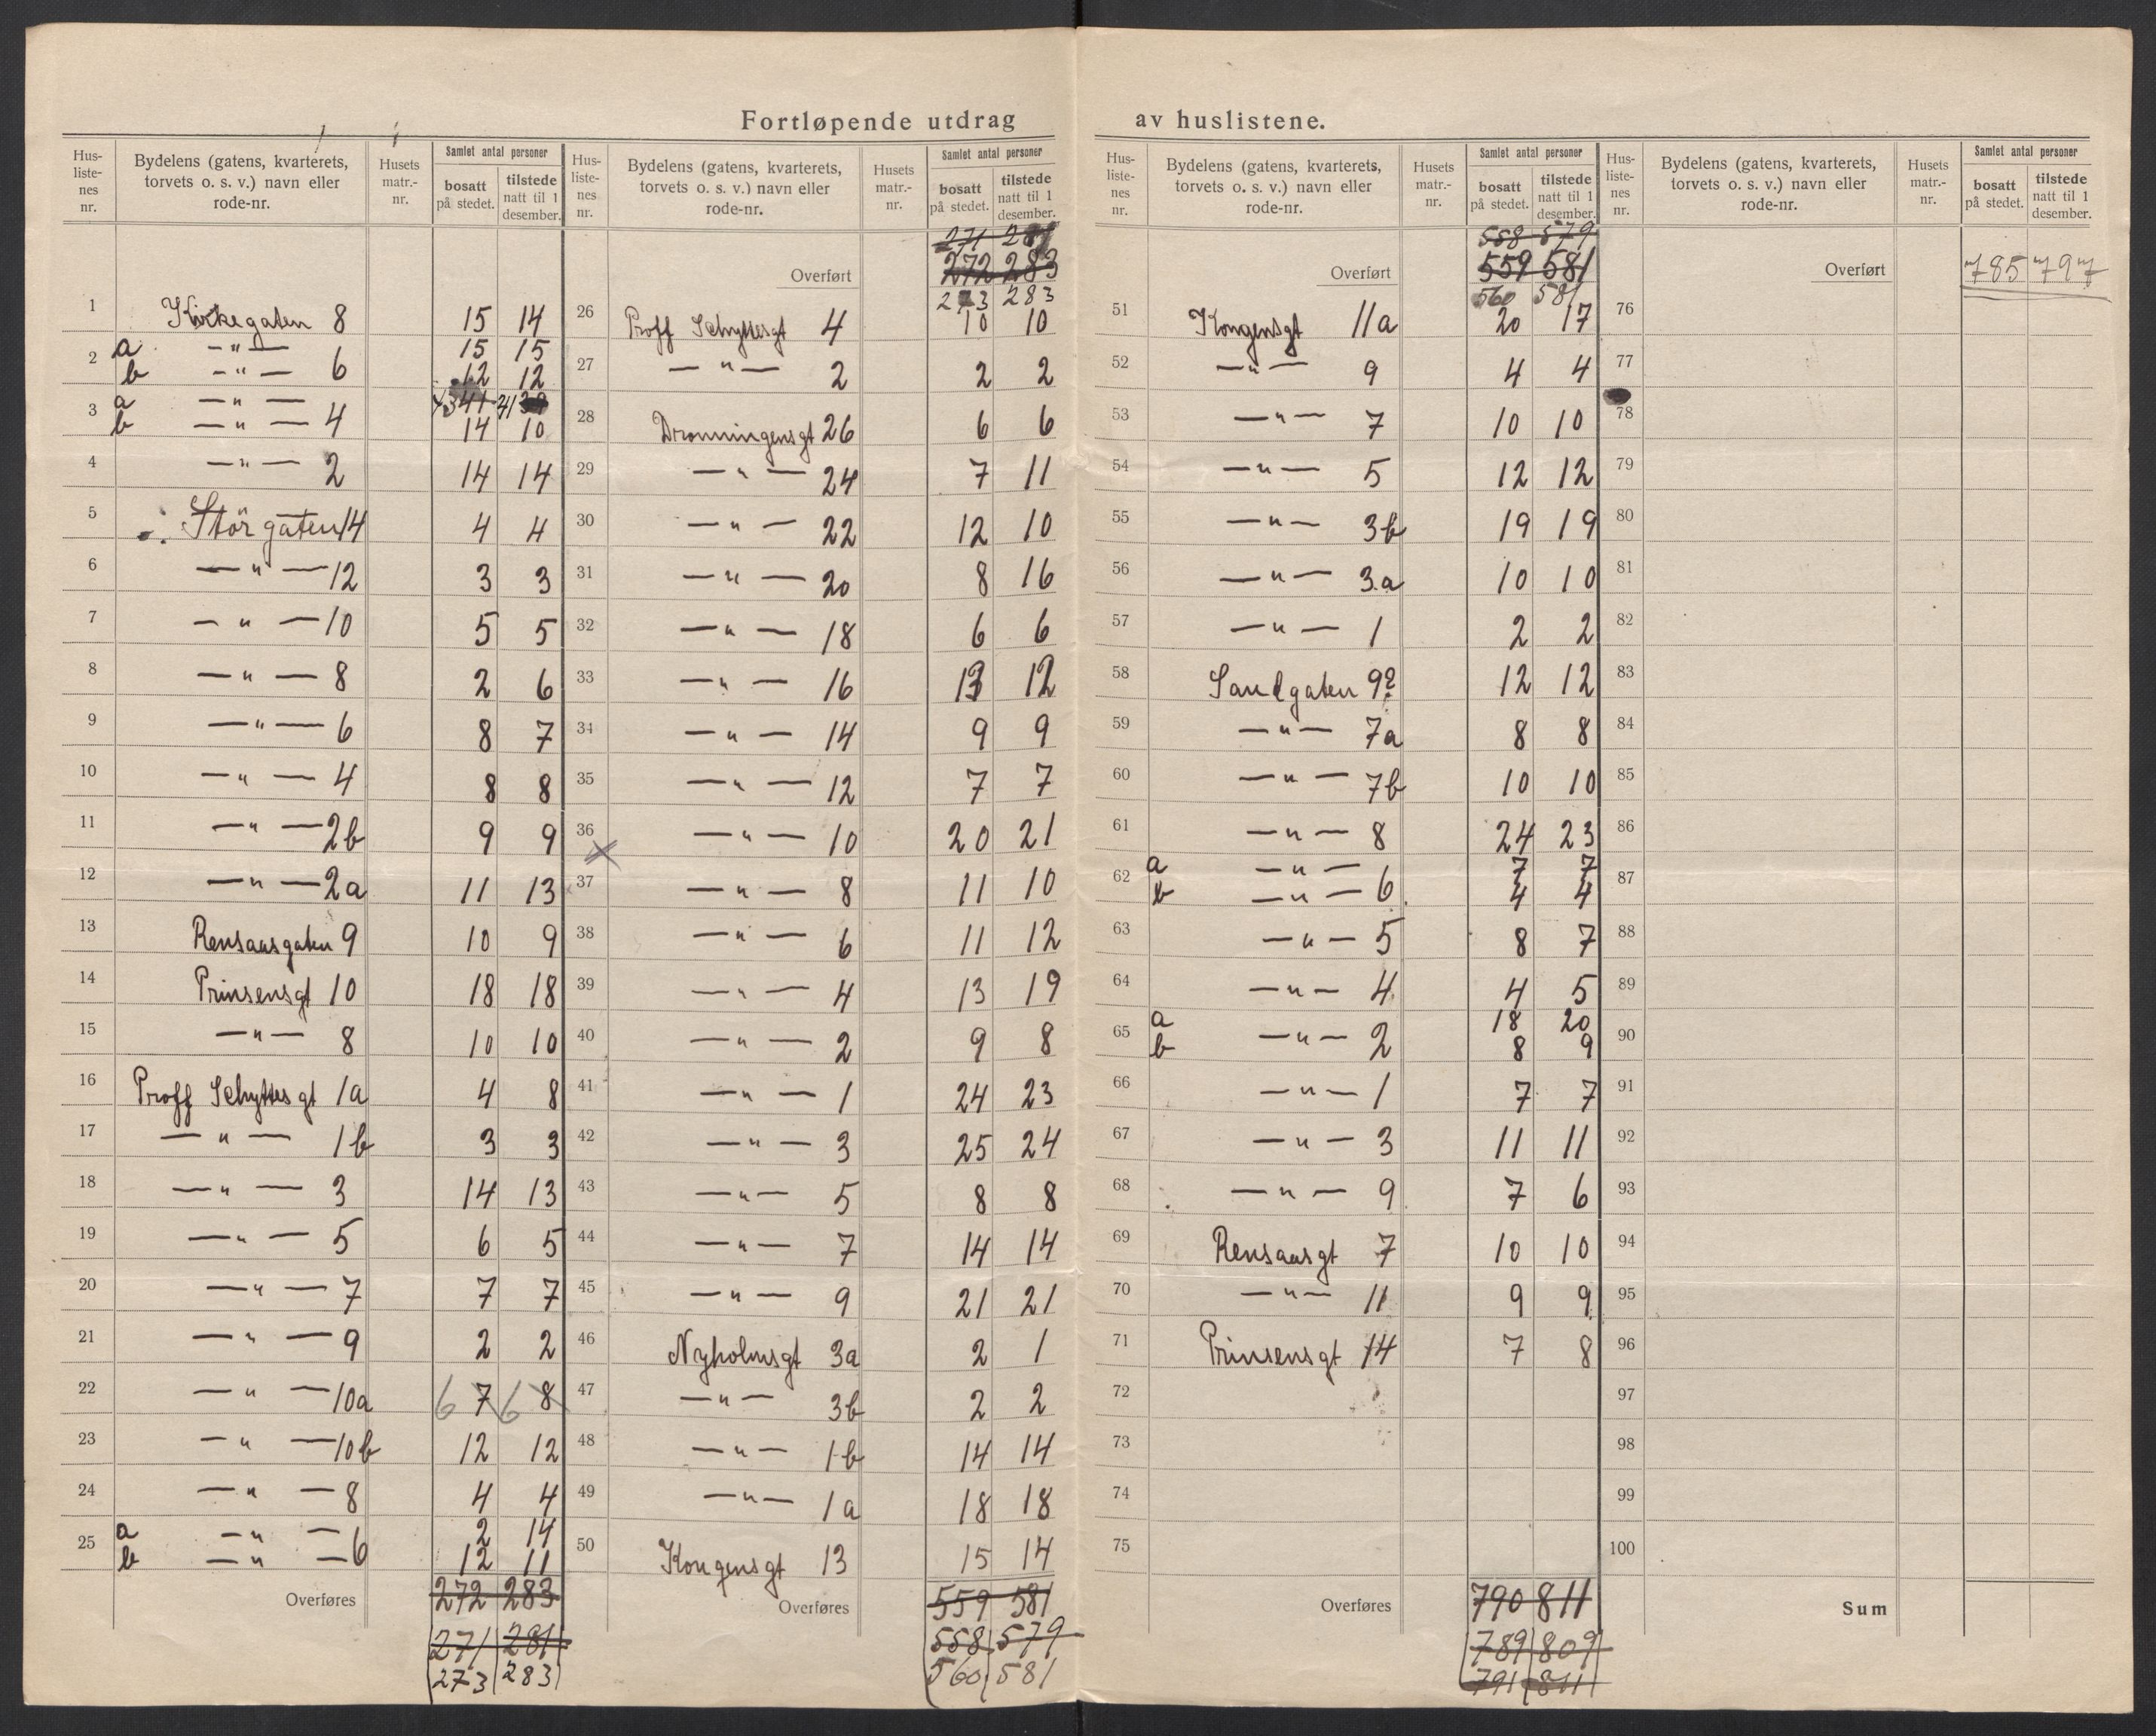 Fortløpende utdrag av huslistene.
Hus-listenes nr. | Bydelens (gatens, kvarterets, torvets o. s. v.) navn eller rode-nr. | Husets matr.-nr. | Samlet antal personer bosatt på stedet. | tilstede natt til 1 desember.
1 Kirkegaten 8 15 14
2 a —"— 15 15
b —"— 6 12 12
3 a —"— 43 41 41
b —"— 4 14 10
4 —"— 2 14 14
5 Storgaten 14 4 4
6 —"— 12 3 3
7 —"— 10 5 5
8 —"— 8 2 6
9 —"— 6 8 7
10 —"— 4 8 8
11 —"— 2b 9 9
12 —"— 2a 11 13
13 Rensaasgaten 9 10 9
14 Prinsensgt 10 18 18
15 —"— 8 10 10
16 Proff Schyttes gt 1a 4 8
17 —"— 1b 3 3
18 —"— 3 14 13
19 —"— 5 6 5
20 —"— 7 7 7
21 —"— 9 2 2
22 —"— 10a 6 7 6 8
23 —"— 10b 12 12
24 —"— 8 4 4
25 a —"— 2 14
b —"— 6 12 11
Overføres 272 283
271 281
273 283
Hus-listenes nr. | Bydelens (gatens, kvarterets, torvets o. s. v.) navn eller rode-nr. | Husets matr.-nr. | Samlet antal personer bosatt på stedet. | tilstede natt til 1 desember.
271 281
Overført 272 283
273 283
26 Proff Schyttesgt 4 10 10
27 —"— 2 2 2
28 Dronningensgt 26 6 6
29 —"— 24 7 11
30 —"— 22 12 10
31 —"— 20 8 16
32 —"— 18 6 6
33 —"— 16 13 12
34 —"— 14 9 9
35 —"— 12 7 7
36 —"— 10 20 21
37 —"— 8 11 10
38 —"— 6 11 12
39 —"— 4 13 19
40 —"— 2 9 8
41 —"— 1 24 23
42 —"— 3 25 24
43 —"— 5 8 8
44 —"— 7 14 14
45 —"— 9 21 21
46 Nyholmsgt 3a 2 1
47 —"— 3b 2 2
48 —"— 1b 14 14
49 —"— 1a 18 18
50 Kongensgt 13 15 14
Overføres 559 581
558 579
560 581
Hus-listenes nr. | Bydelens (gatens, kvarterets, torvets o. s. v.) navn eller rode-nr. | Husets matr.-nr. | Samlet antal personer bosatt på stedet. | tilstede natt til 1 desember.
558 579
Overført 559 581
560 581
51 Kongensgt 11a 20 17
52 —"— 9 4 4
53 —"— 7 10 10
54 —"— 5 12 12
55 —"— 3b 19 19
56 —"— 3a 10 10
57 —"— 1 2 2
58 Sandgaten 9? 12 12
59 —"— 7a 8 8
60 —"— 7b 10 10
61 —"— 8 24 23
62 a —"— 7 7
b —"— 6 4 4
63 —"— 5 8 7
64 —"— 4 4 5
65 a 18 20
b —"— 2 8 9
66 —"— 1 7 7
67 —"— 3 11 11
68 —"— 9 7 6
69 Rensaasgt 7 10 10
70 —"— 11 9 9
71 Prinsensgt 14 7 8
72
73
74
75
Overføres 790 811
789 809
791 811
Hus-listenes nr. | Bydelens (gatens, kvarterets, torvets o. s. v.) navn eller rode-nr. | Husets matr.-nr. | Samlet antal personer bosatt på stedet. | tilstede natt til 1 desember.
Overført 785 797
76
77
78
79
80
81
82
83
84
85
86
87
88
89
90
91
92
93
94
95
96
97
98
99
100
Sum